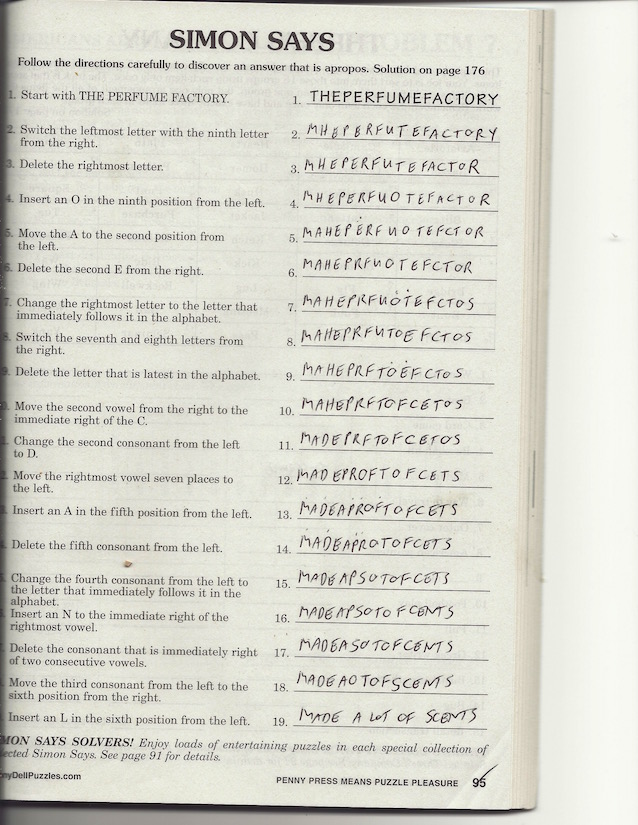 SIMON SAYS
Follow the directions carefully to discover an answer that is apropos. Solution on page 176
1. Start with THE PERFUME FACTORY.
1. THEPERFUMEFACTORY
2. Switch the leftmost letter with the ninth letter
from the right.
2. MHEPERFUTEFACTORY
3. Delete the rightmost letter.
3. MHEPERFUTEFACTOR
4. Insert an O in the ninth position from the left.
4. MHEPERFUOTEFACTOR
5. Move the A to the second position from
the left.
5. MAHEPERFUOTEFCTOR
6. Delete the second E from the right.
6. MAHEPRFUOTEFCTOR
7. Change the rightmost letter to the letter that
immediately follows it in the alphabet.
7. MAHEPRFUOTEFCTOS
8. Switch the seventh and eighth letters from
the right.
8. MAHEPRFUTOEFCTOS
9. Delete the letter that is latest in the alphabet.
9. MAHEPRFTOEFCTOS
Move the second vowel from the right to the
immediate right of the C.
10. MAHEPRFTOFCETOS
Change the second consonant from the left
to D.
11. MADEPRFTOFCETOS
Move the rightmost vowel seven places to
the left.
12. MADEPROFTOFCETS
Insert an A in the fifth position from the left.
13. MADEAPROFTOFCETS
Delete the fifth consonant from the left.
14. MADEAPROTOFCETS
Change the fourth consonant from the left to
the letter that immediately follows it in the
alphabet.
15. MADEAPSOTOFCETS
Insert an N to the immediate right of the
rightmost vowel.
16. MADEAPSOTOFCENTS
Delete the consonant that is immediately right
of two consecutive vowels.
17. MADEASOTOFCENTS
Move the third consonant from the left to the
sixth position from the right.
18. MADEAOTOFSCENTS
Insert an L in the sixth position from the left.
19. MADE A LOT OF SCENTS
MON SAYS SOLVERS! Enjoy loads of entertaining puzzles in each special collection of
lected Simon Says. See page 91 for details.
nyDellPuzzles.com
PENNY PRESS MEANS PUZZLE PLEASURE 95